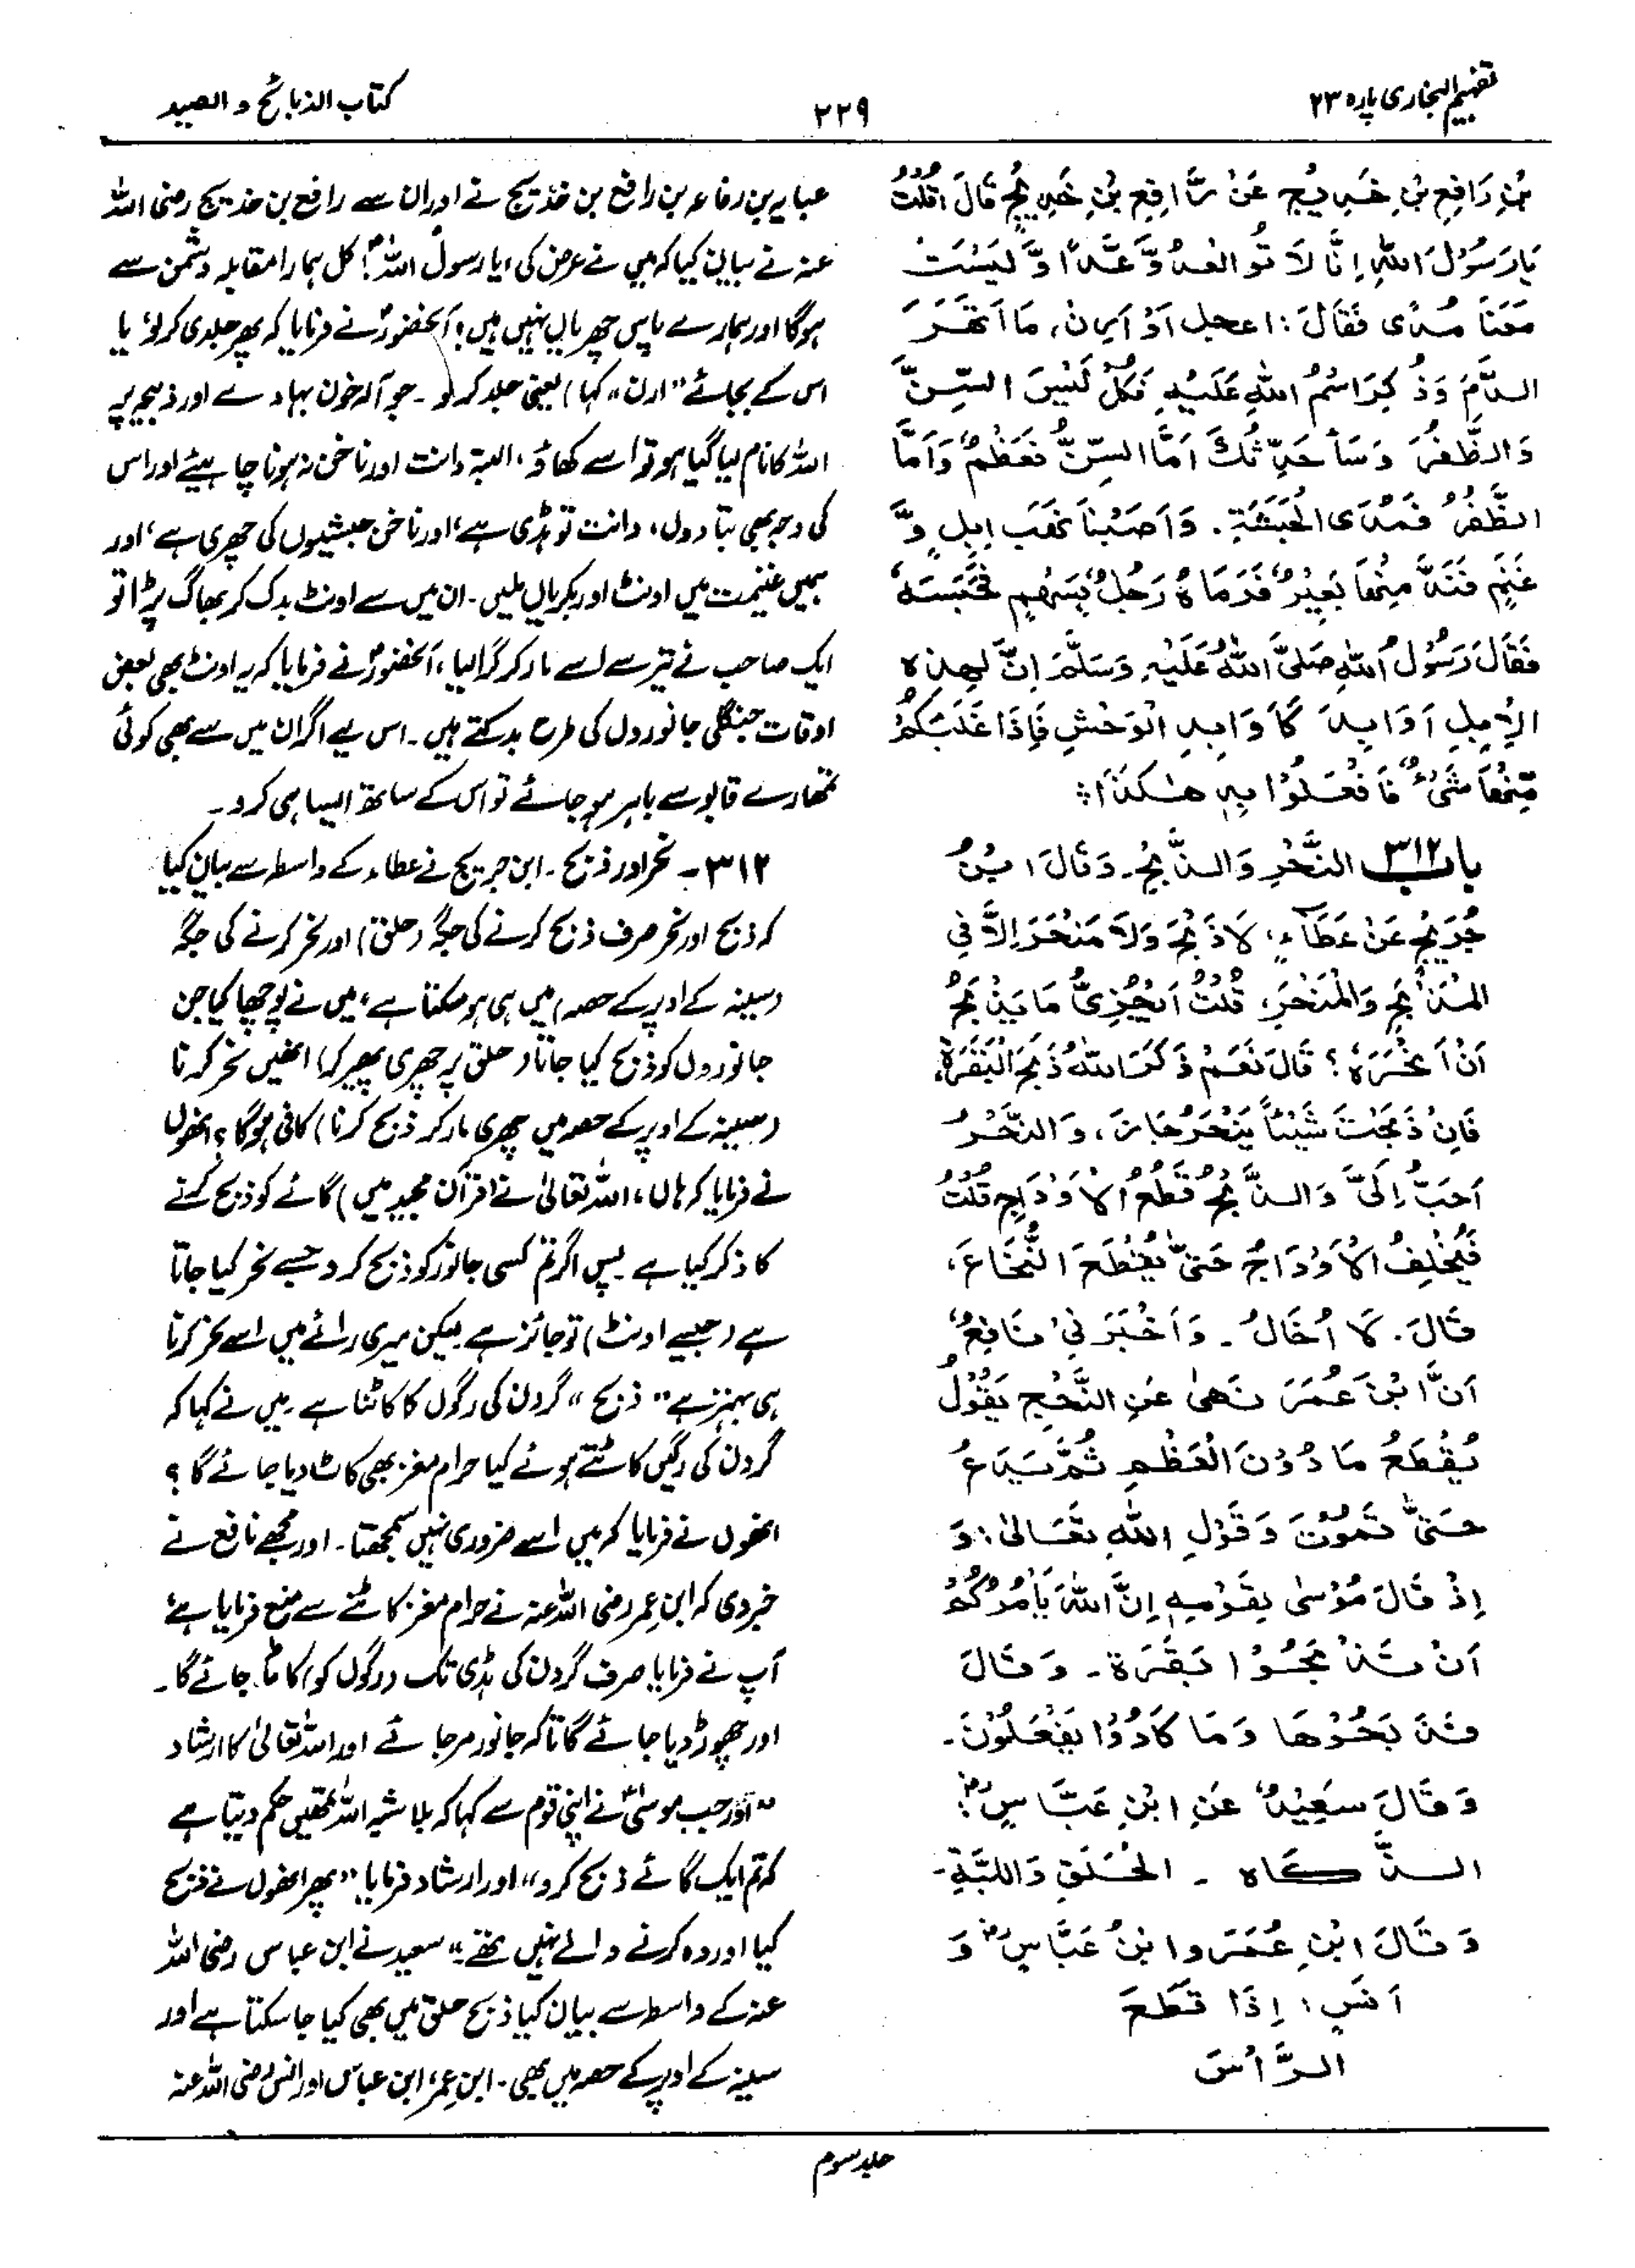 تفہیم البخاری پارہ ۲۳
۲۲۹
کتاب الذبائح والصید
بْنِ رَافِعِ بْنِ خَدِيجٍ عَنْ رَّافِعِ بْنِ خَدِيجٍ قَالَ قُلْتُ
يَارَسُوْلَ اللهِ إِنَّا لَا قُوا الْعَدُوَّ غَدًا وَّ لَيْسَتْ
مَعَنَا مُدًى فَقَالَ: اعجل اَوْ اَرِنْ، مَا اَنْهَرَ
الدَّمَ وَذُكِرَ اسْمُ اللهِ عَلَيْهِ فَكُلْ لَيْسَ السِّنَّ
وَالظُّفُرَ وَسَأُحَدِّثُكَ اَمَّا السِّنُّ فَعَظْمٌ وَاَمَّا
الظُّفُرُ فَمُدَى الْحَبَشَةِ. وَاَصَبْنَا نَهْبَ اِبِلٍ وَّ
غَنَمٍ فَنَدَّ مِنْهَا بَعِيْرٌ فَرَمَاهُ رَجُلٌ بِسَهْمٍ فَحَبَسَهُ
فَقَالَ رَسُوْلُ اللهِ صَلَّى اللهُ عَلَيْهِ وَسَلَّمَ اِنَّ لِهٰذِهِ
الْاِبِلِ اَوَابِدَ كَاَوَابِدِ الْوَحْشِ فَاِذَا غَلَبَكُمْ
مِّنْهَا شَيْءٌ فَافْعَلُوْا بِهٖ هٰكَذَا ؛
باب ۳۱۲ النَّحْرِ وَالذَّبْحِ۔ وَقَالَ ابْنُ
جُرَيْجٍ عَنْ عَطَآءٍ، لَا ذَبْحَ وَلَا مَنْحَرَ اِلَّا فِي
الْمَذْبَحِ وَالْمَنْحَرِ، قُلْتُ اَيُجْزِيُّ مَا يُذْبَحُ
اَنْ اَنْحَرَهُ؟ قَالَ نَعَمْ ذَكَرَ اللهُ ذَبْحَ الْبَقَرَةِ،
فَاِنْ ذَبَحْتَ شَيْئًا يُنْحَرُ جَازَ، وَالنَّحْرُ
اَحَبُّ اِلَيَّ وَالذَّبْحُ قَطْعُ الْاَوْدَاجِ قُلْتُ
فَيُخَلِّفُ الْاَوْدَاجَ حَتّٰى يُقْطَعَ النُّخَاعَ،
قَالَ. لَا اُخَالُ۔ وَاَخْبَرَنِيْ نَافِعٌ
اَنَّ ابْنَ عُمَرَ نَهٰى عَنِ النَّخْعِ يَقُوْلُ
يُقْطَعُ مَا دُوْنَ الْعَظْمِ ثُمَّ يَدَعُ
حَتّٰى تَمُوْتَ وَقَوْلِ اللهِ تَعَالٰى: وَ
اِذْ قَالَ مُوْسٰى لِقَوْمِهٖ اِنَّ اللهَ يَأْمُرُكُمْ
اَنْ تَذْبَحُوْا بَقَرَةً۔ وَقَالَ
فَذَبَحُوْهَا وَمَا كَادُوْا يَفْعَلُوْنَ۔
وَقَالَ سَعِيْدٌ عَنِ ابْنِ عَبَّاسٍؓ:
الذَّكَاه ۔ الْحَلَقِ وَاللَّبَّةِ۔
وَقَالَ ابْنِ عُمَرَ وابْنُ عَبَّاسٍؓ وَ
اَنَسٍ: اِذَا قَطَعَ
الرَّأْسَ
عبایہ بن رفاعہ بن رافع بن خدیج نے اور ان سے رافع بن خدیج رضی اللہ
عنہ نے بیان کیا کہ میں نے عرض کی، یا رسول اللہؐ! کل ہمارا مقابلہ دشمن سے
ہوگا اور ہمارے پاس چھریاں نہیں ہیں؛ آنحضورؐ نے فرمایا کہ پھر جلدی کرلو، یا
اس کے بجائے ”ارن“ کہا) یعنی جلد کرلو ۔ جو آلہ خون بہادے اور ذبیحہ پر
اللہ کا نام لیا گیا ہو تو اسے کھاؤ، البتہ دانت اور ناخن نہ ہونا چاہیئے اور اس
کی وجہ بھی بتا دوں، دانت تو ہڈی ہے، اور ناخن حبشیوں کی چھری ہے، اور
ہمیں غنیمت میں اونٹ اور بکریاں ملیں۔ ان میں سے اونٹ بدک کر بھاگ پڑا تو
ایک صاحب نے تیر سے اسے مار کر گرا لیا، آنحضورؐ نے فرمایا کہ یہ اونٹ بھی بعض
اوقات جنگلی جانوروں کی طرح بدکتے ہیں۔ اس لیے اگر ان میں سے بھی کوئی
تمھارے قابو سے باہر ہو جائے تو اس کے ساتھ ایسا ہی کرو۔
۳۱۲۔ نحر اور ذبح ۔ ابن جریج نے عطاء کے واسطہ سے بیان کیا
کہ ذبح اور نحر صرف ذبح کرنے کی جگہ (حلق) اور نحر کرنے کی جگہ
(سینہ کے اوپر کے حصہ) میں ہی ہو سکتا ہے، میں نے پوچھا کیا جن
جانوروں کو ذبح کیا جاتا (حلق پر چھری پھیر کر) انھیں نحر کرنا
(سینہ کے اوپر کے حصہ میں چھری مار کر ذبح کرنا) کافی ہوگا؟ انھوں
نے فرمایا کہ ہاں، اللہ تعالیٰ نے (قرآن مجید میں) گائے کو ذبح کرنے
کا ذکر کیا ہے پس اگر تم کسی جانور کو ذبح کرو جسے نحر کیا جاتا
ہے (جیسے اونٹ) تو جائز ہے لیکن میری رائے میں اسے نحر کرنا
ہی بہتر ہے ”ذبح“ گردن کی رگوں کا کاٹنا ہے ۔ میں نے کہا کہ
گردن کی رگیں کاٹتے ہوئے کیا حرام مغز بھی کاٹ دیا جائے گا ؟
انھوں نے فرمایا کہ میں اسے ضروری نہیں سمجھتا۔ اور مجھے نافع نے
خبر دی کہ ابن عمر رضی اللہ عنہ نے حرام مغز کاٹنے سے منع فرمایا ہے
آپ نے فرمایا صرف گردن کی ہڈی تک (رگوں کو) کاٹا جائے گا۔
اور چھوڑ دیا جائے گا تاکہ جانور مر جائے اور اللہ تعالیٰ کا ارشاد
”اور جب موسیٰؑ نے اپنی قوم سے کہا کہ بلا شبہ اللہ تمھیں حکم دیتا ہے
کہ تم ایک گائے ذبح کرو“ اور ارشاد فرمایا ”پھر انھوں نے ذبح
کیا اور وہ کرنے والے نہیں تھے“ سعید نے ابن عباس رضی اللہ
عنہ کے واسطہ سے بیان کیا ذبح حلق میں بھی کیا جا سکتا ہے اور
سینہ کے اوپر کے حصہ میں بھی۔ ابن عمرؓ، ابن عباس اور انس رضی اللہ عنہ
جلد سوم